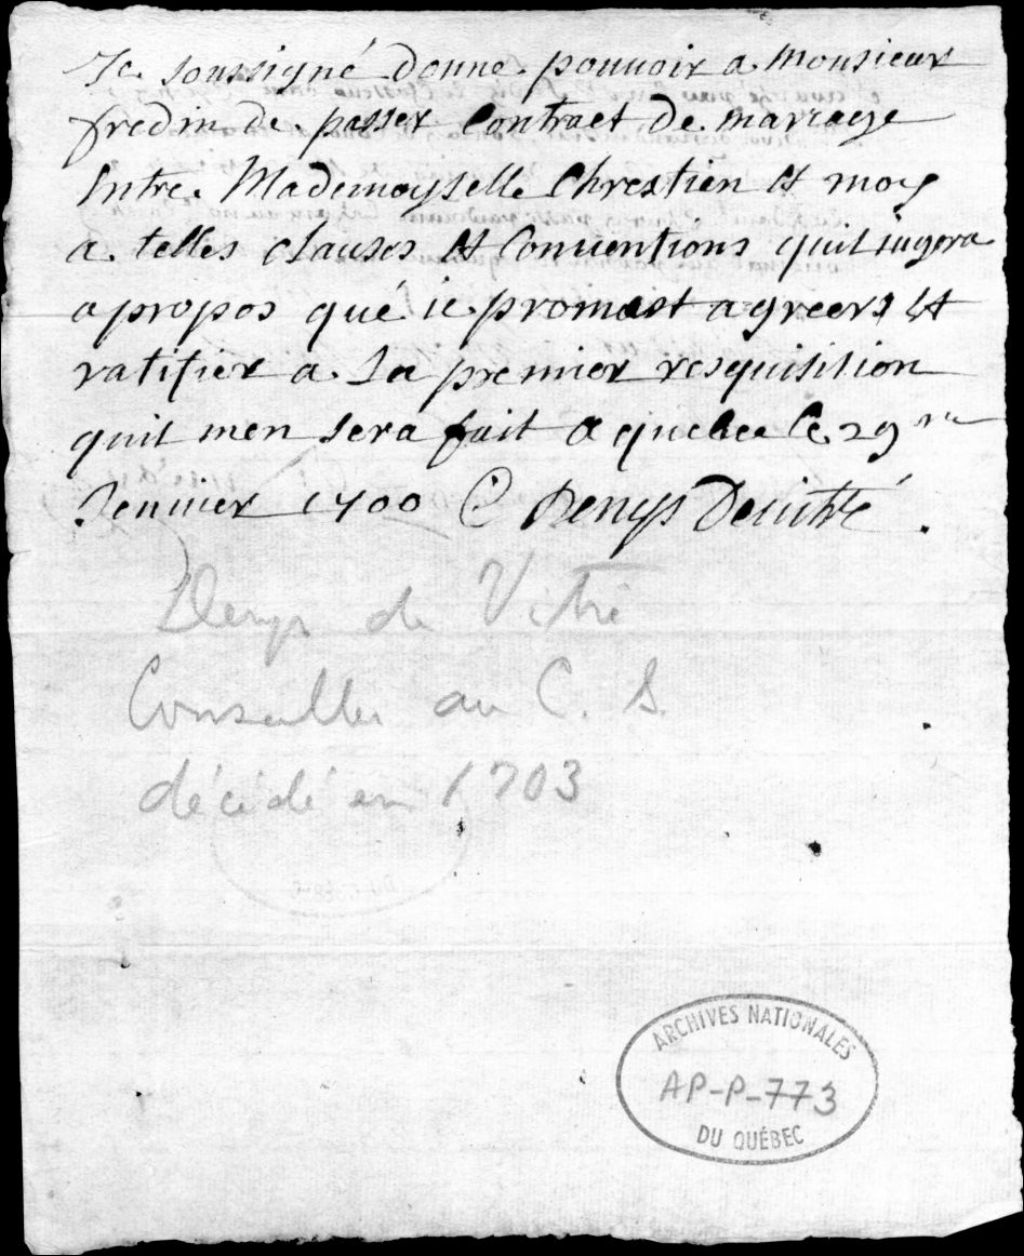 Je soussigné donne pouvoir a Monsieur
fredin de passer Contract de mariage
Entre Mademoyselle Chrestien Et moy
a telles clauses Et Conuentions quil iugera
apropos qué ie promest agreers Et
ratifier a La premier resquisition
quil men sera fait a quebec Ce 29
Jenuier 1700 Denys Deuitré
Denys de Vitré
Conseiller au C. S.
décédé en 1703
ARCHIVES NATIONALES
AP-P-773
DU QUÉBEC